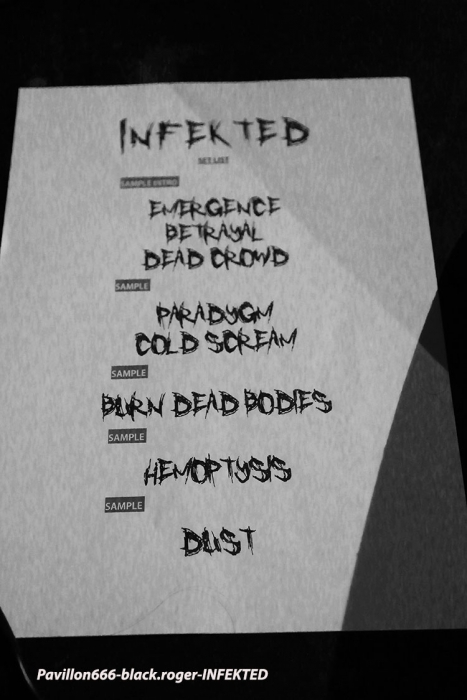 INFEKTED
SET LIST
SAMPLE INTRO
EMERGENCE
BETRAYAL
DEAD CROWD
SAMPLE
PARADYGM
COLD SCREAM
SAMPLE
BURN DEAD BODIES
SAMPLE
HEMOPTYSIS
SAMPLE
DUST
Pavillon666-black.roger-INFEKTED